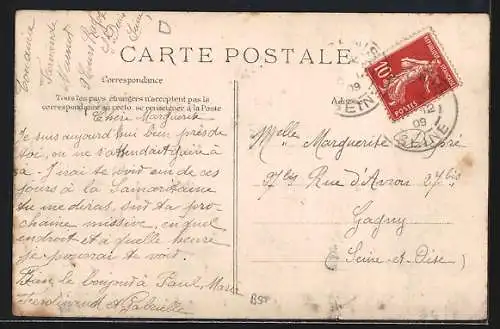 CARTE POSTALE
Correspondance
Tous les pays étrangers n'acceptent pas la
correspondance au recto, se renseigner à la Poste
Chère Marguerite
Je suis aujourd'hui bien près de
toi, on ne s'attendait guère à
ça. J'irai te voir un de ces
jours à la Samaritaine
tu me diras, sur ta pro-
chaine missive, en quel
endroit et a quelle heure
je pourrai te voir.
le bonjour à Paul, Marie
Ferdinand et Gabrielle
Fernande
RÉPUBLIQUE FRANÇAISE
10c
POSTES
09
SEINE
12
09
SEINE
Melle Marguerite
27bis Rue d'Avron 27bis
Gagny
(Seine-et-Oise)